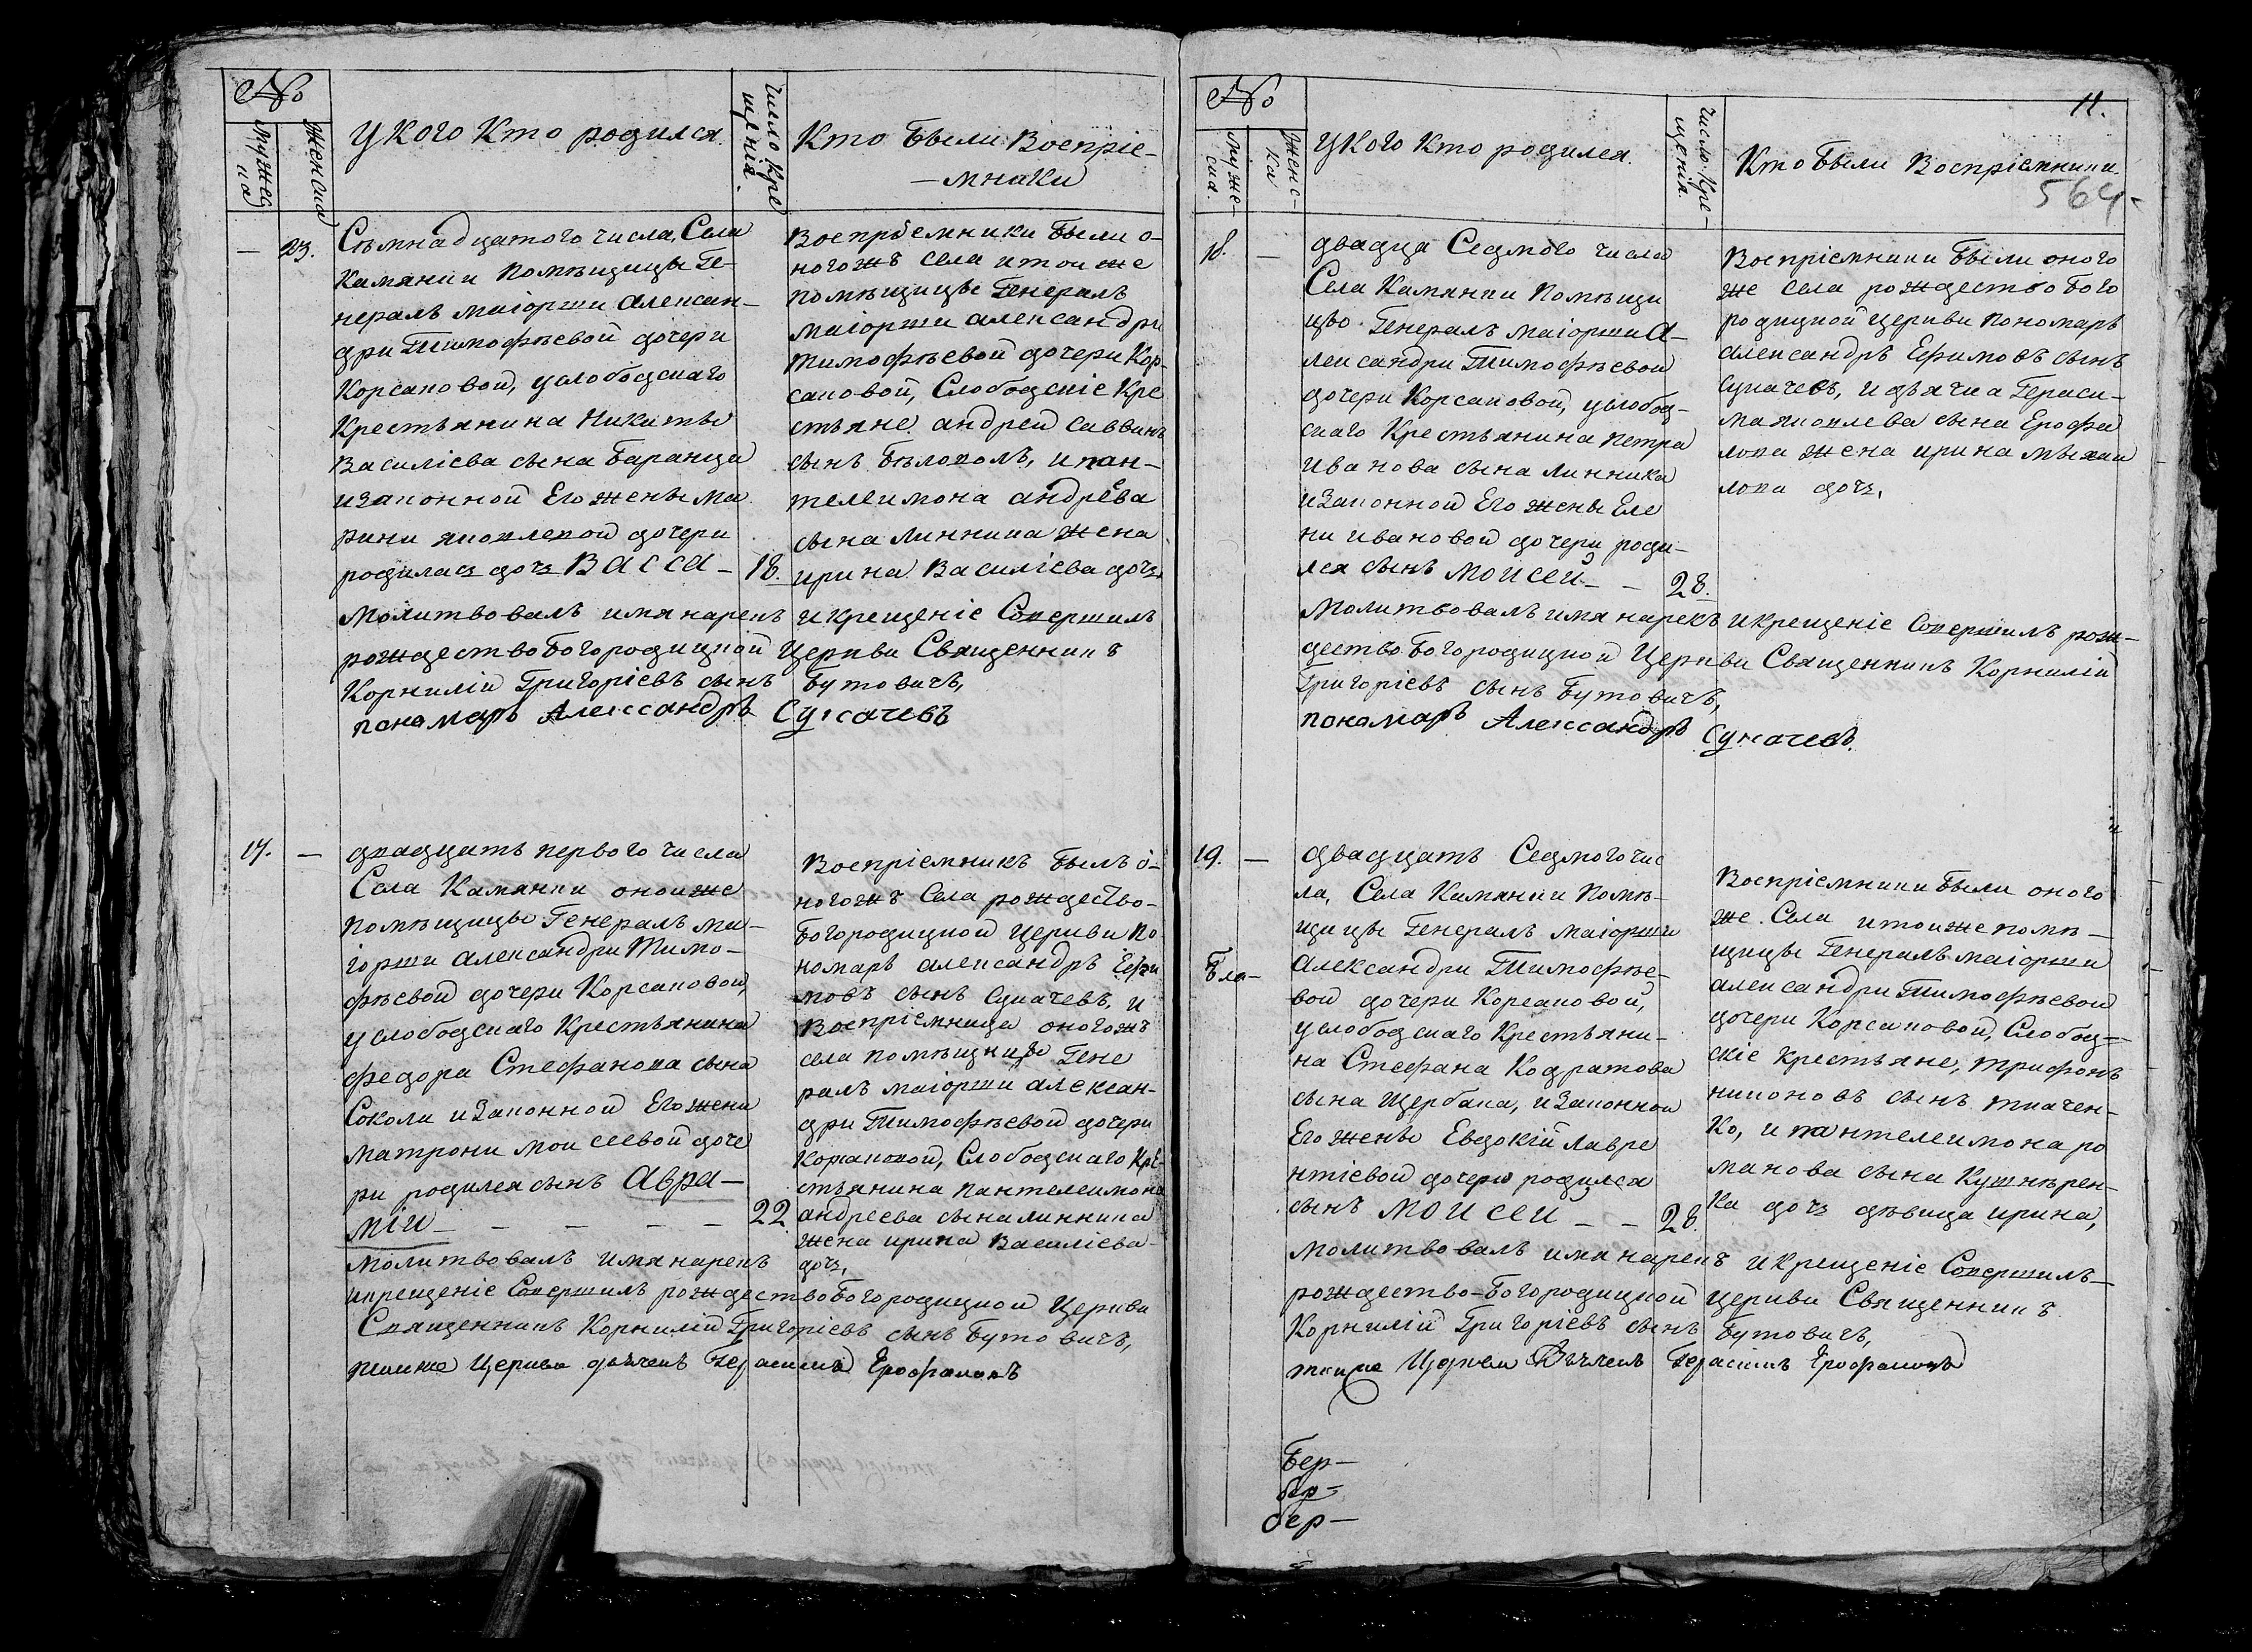 №
Мужеска
Женска
У Кого Кто родился
Число Крещенiя.
Кто Были Воспрiе-
-мники
— 23.
Съмнадцатого числа, Села
Камянки помѣщицы Ге-
нералъ маiорши Алексан-
дри Тимофѣевой дочери
Корсаковой, услободскаго
Крестьянина Никиты
Василiева сына Баранца
изаконной Его жены Ма
рини яковлевой дочери
родилась дочь Васса — 18.
Воспрiемники были о-
ногожъ села итои же
помѣщицы Генералъ
маiорши александри
тимофѣевой дочери Кор-
саковой, Слободскiе Кре
стьяне андреи саввинъ
сынъ Бѣлоколъ, и пан-
телеимона андрева
сына линника жена
ирина Василiева дочь.
Молитвовалъ имя нарекъ и крещенiе Совершилъ
рождество Богородицкой Церкви Священникъ
Корнилiи Григорiевъ сынъ Бутовичъ,
понамарь Александръ Сукачевъ
17. —
двадцать первого числа
Села Камянки оноиже
помѣщицы Генералъ ма-
iорши александри Тимо-
фѣевой дочери Корсаковой,
услободскаго Крестьянина
федора Стефанова сына
Соколи изаконной Его жени
Матрони моисеевой доче
ри родился сынъ Авра-
мiи — — — — — 22
Воспрiемникъ былъ о-
ногожъ Села рождество-
богородицкой церкви по
номарь александръ Ефи
мовъ сынъ Сукачевъ, и
Воспрiемница оногожъ
села помѣщицы Гене
ралъ маiорши алексан-
дри Тимофѣевой дочери
Корсаковой, Слободскаго Кре-
стьянина пантелеимона
андреева сына линника
жена ирина Василiева
дочь,
Молитвовалъ имя нарекъ
икрещенiе Совершилъ рождествобогородицкои Церкви
Священникъ Корнилiй Григорiевъ сынъ Бутовичъ,
тоиже Церкви дьячекъ Герасимъ Ерофаловъ
11.
564
№
Мужеска.
Женска
У Кого Кто родился.
Число Крещенiя.
Кто Были Воспрiемники.
18. —
двадца Седмого числа
Села Камянки помѣщи
цы Генералъ маiорши А-
лександри Тимофѣевои
дочери Корсаковой, услобод-
скаго Крестьянина петра
Иванова сына линника
изаконной Его жены Еле
ни ивановой дочери роди-
лся сынъ моисей — — 28.
Воспрiемники были оного
же села рождество бого
родицкой церкви пономарь
александръ Ефимовъ сынъ
Сукачевъ, и дьячка Гераси-
ма яковлева сына Ерофа
лова жена ирина михаи
лова дочь,
Молитвовалъ имя нарекъ икрещенiе Совершилъ рож-
дество богородицкои Церкви Священникъ Корнилiй
Григорiевъ сынъ Бутовичъ,
понамарь Александръ Сукачевъ.
19. —
двадцать Седмого чис
ла, Села Камянки помѣ-
щицы Генералъ маiорши
Александри Тимофѣе-
вои дочери Корсаковой,
услободскаго Крестьяни-
на Стефана Кодратова
сына Щербака, изаконнои
Его жены Евдокiй лавре
нтiевой дочери родился
сынъ моисеи — — 28.
Бла-
Воспрiемники были оного
же Села итоиже помѣ-
щицы Генералъ маiорши
александри Тимофѣевои
дочери Корсаковой, Слобод-
скiе крестьяне, трифонъ
никоновъ сынъ ткачен-
ко, и пантелеимона ро
манова сына Кушнѣрен-
ка дочь дѣвица ирина,
Молитвовалъ имя нарекъ икрещенiе Совершилъ
рождество-богородицкой церкви Священникъ
Корнилiй Григорiевъ сынъ Бутовичъ,
тоиже Церкви Дьячекъ Герасимъ Ерофаловъ
Бер-
бр-
бер-